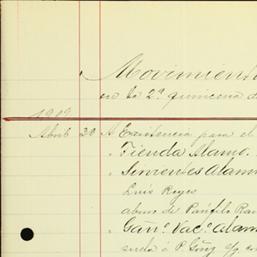 Movimient
en la 2ª quincena d
1909
Abril 30 A Existencia para el
" Tienda Alamo.
" Sirvientes Alam
Luis Reyes
abono de Pánfilo Ra
" Gañⁿ. Vacª. Alam